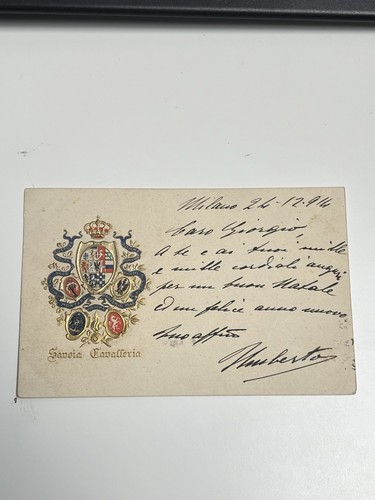 Milano 24-12.914
Caro Giorgio,
a te e ai tuoi mille
e mille cordiali auguri
per un buon Natale
ed un felice anno nuovo
tuo affmo
Umberto
Savoia Cavalleria